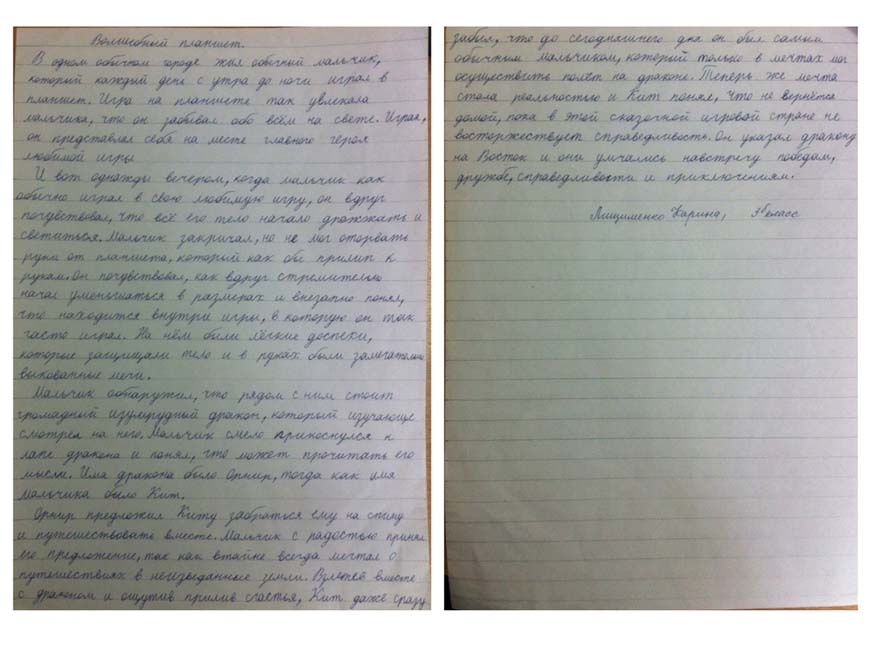 Волшебный планшет.
В одном обычном городе жил обычный мальчик,
который каждый день с утра до ночи играл в
планшет. Игра на планшете так увлекала
мальчика, что он забывал обо всём на свете. Играя,
он представлял себе на месте главного героя
любимой игры.
И вот однажды вечером, когда мальчик как
обычно играл в свою любимую игру, он вдруг
почувствовал, что всё его тело начало дражжать и
светиться. Мальчик закричал, но не мог оторвать
руки от планшета, который как бы прилип к
рукам. Он почувствовал, как вдруг стремительно
начал уменьшаться в размерах и внезапно понял,
что находится внутри игры, в которую он так
часто играл. На нём были лёгкие доспехи,
которые защищали тело и в руках были замечательно
выкованные мечи.
Мальчик обнаружил, что рядом с ним стоит
громадный изумрудный дракон, который изучающе
смотрел на него. Мальчик смело прикоснулся к
лапе дракона и понял, что может прочитать его
мысли. Имя дракона было Орнир, тогда как имя
мальчика было Кит.
Орнир предложил Киту забраться ему на спину
и путешествовать вместе. Мальчик с радостью принял
его предложение, так как втайне всегда мечтал о
путешествиях в неизведанные земли. Взлетев вместе
с драконом и ощутив прилив счастья, Кит даже сразу
забыл, что до сегодняшнего дня он был самым
обычным мальчиком, который только в мечтах мог
осуществить полёт на драконе. Теперь же мечта
стала реальностью и Кит понял, что не вернётся
домой, пока в этой сказочной игровой стране не
восторжествует справедливость. Он указал дракону
на Восток и они умчались навстречу победам,
дружбе, справедливости и приключениям.
Лищименко Карина, класс